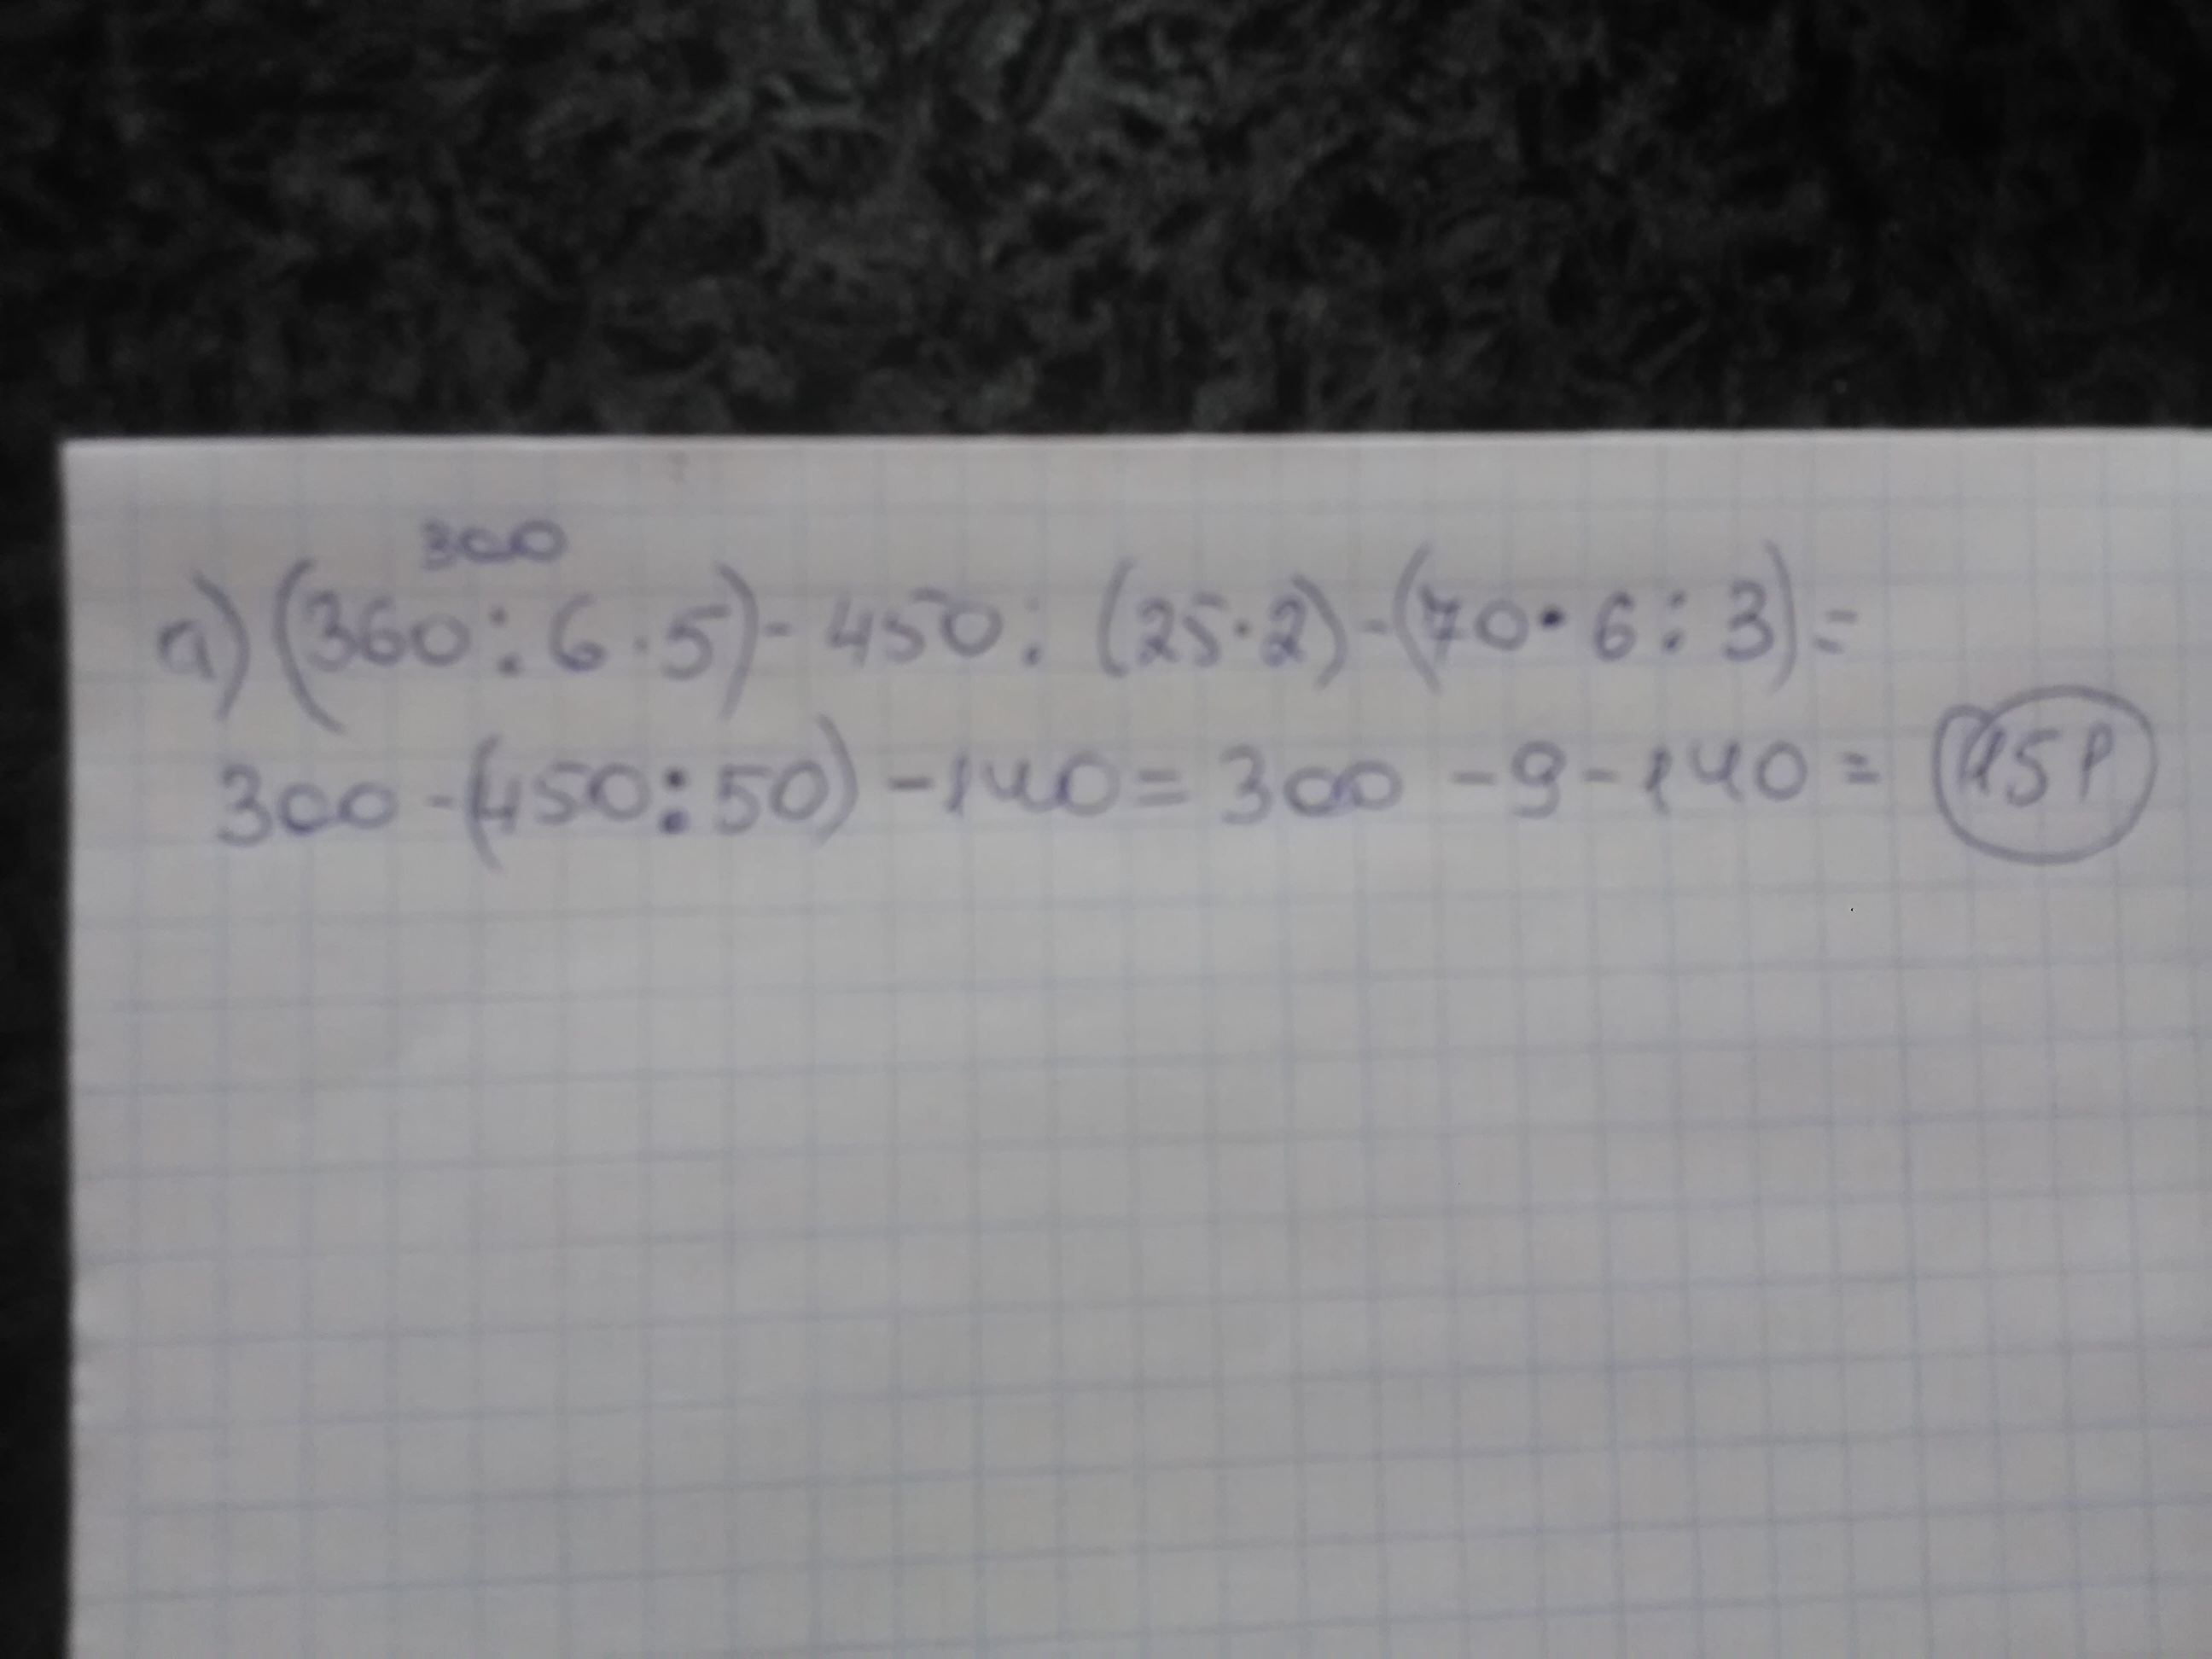 300
а) (360 : 6 · 5) - 450 : (25 · 2) - (70 · 6 : 3) =
300 - (450 : 50) - 140 = 300 - 9 - 140 = 151